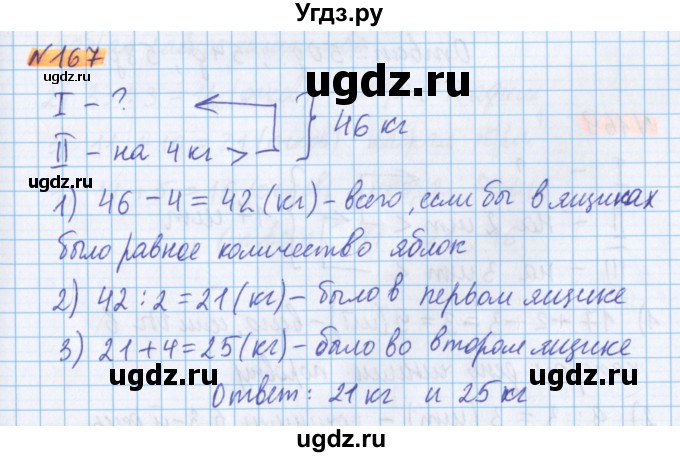 Угдз.ру
№167
ugdz.ru
ugdz.ru
ugdz.ru
I - ?
46 кг
II - на 4 кг >
ugdz.ru
ugdz.ru
1) 46 - 4 = 42 (кг) - всего, если бы в ящиках
было равное количество яблок
2) 42 : 2 = 21 (кг) - было в первом ящике
3) 21 + 4 = 25 (кг) - было во втором ящике
ugdz.ru
ugdz.ru
ugdz.ru
Ответ: 21 кг и 25 кг
ugdz.ru